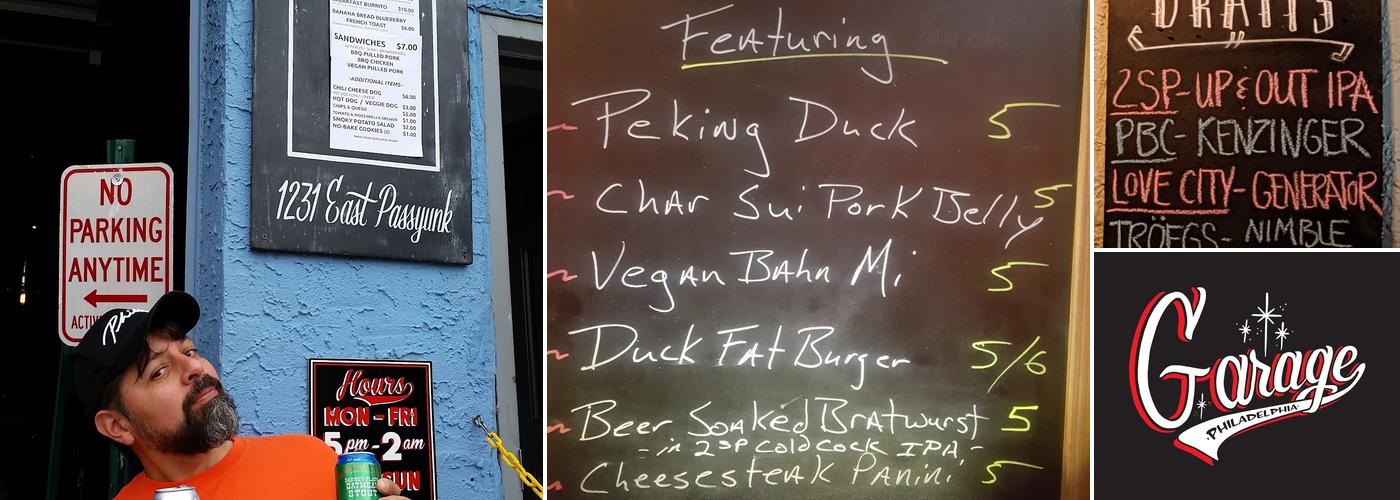 BREAKFAST BURRITO $10.00
BANANA BREAD BLUEBERRY
FRENCH TOAST $6.00
SANDWICHES $7.00
BBQ PULLED PORK
BBQ CHICKEN
VEGAN PULLED PORK
-ADDITIONAL ITEMS-
CHILI CHEESE DOG $6.00
HOT DOG / VEGGIE DOG $3.00
CHIPS & QUESO $5.00
TOMATO & MOZZARELLA SKEWER $1.00
SMOKY POTATO SALAD $2.00
NO-BAKE COOKIES (2) $1.00
1231 East Passyunk
NO
PARKING
ANYTIME
Hours
MON - FRI
5pm - 2am
SUN
OATMEAL
STOUT
Featuring
~ Peking Duck 5
~ Char Sui Pork Belly 5
~ Vegan Bahn Mi 5
~ Duck Fat Burger 5/6
~ Beer Soaked Bratwurst 5
- in 2SP Cold Cock IPA -
~ Cheesesteak Panini 5
DRAFTS
2SP-UP & OUT IPA
PBC- KENZINGER
LOVE CITY- GENERATOR
TRÖEGS- NIMBLE
Garage
PHILADELPHIA